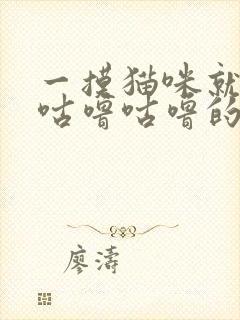 一摸猫咪就
咕噜咕噜的
廖涛